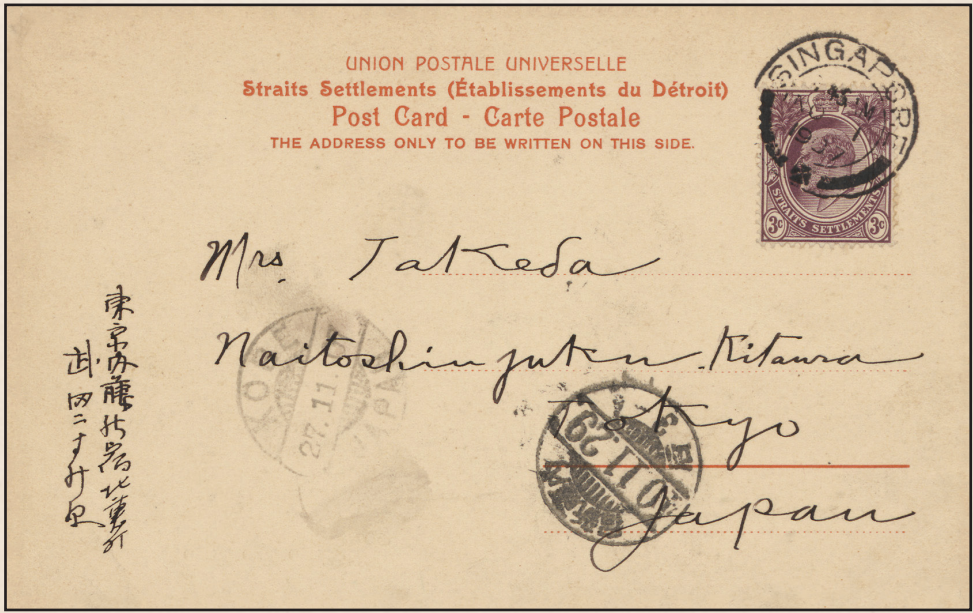 UNION POSTALE UNIVERSELLE
Straits Settlements (Établissements du Détroit)
Post Card - Carte Postale
THE ADDRESS ONLY TO BE WRITTEN ON THIS SIDE.
SINGAPORE
STRAITS SETTLEMENTS
3c 3c
Mrs. Takeda
Naitoshinjuku. Kitaura
Tokyo
Japan
KOBE
27.11
JAPAN
11.29
東京内藤新宿北裏町